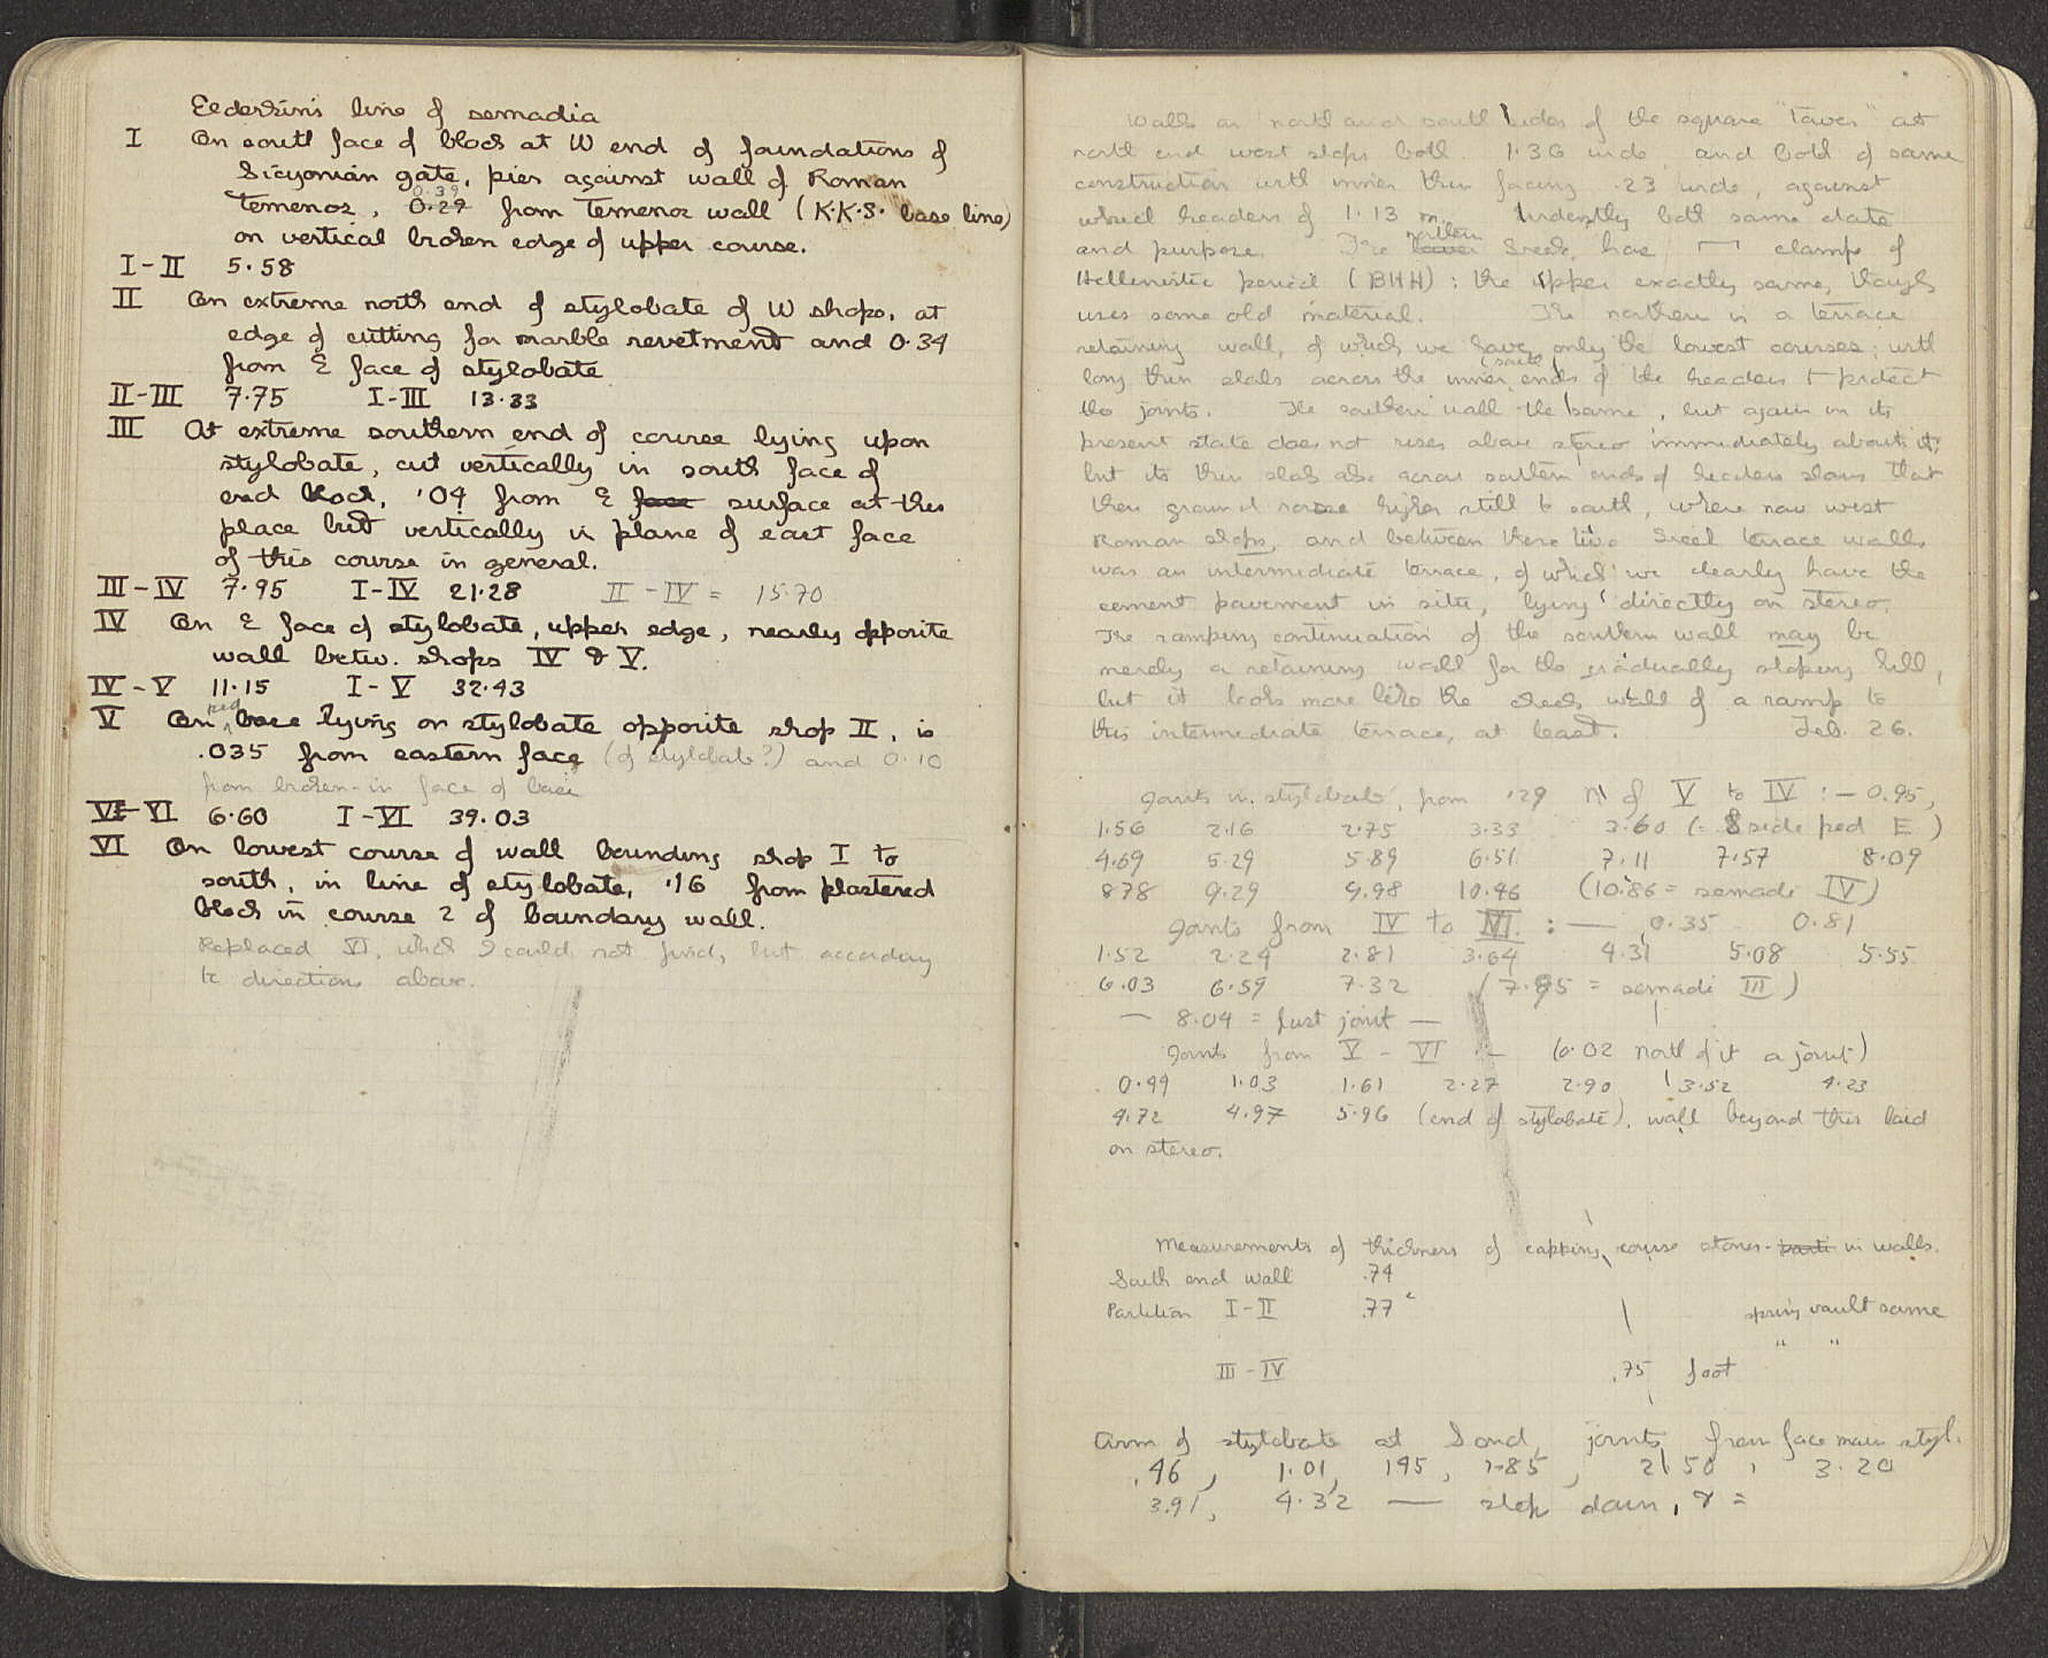 line of semadia
I On south face of block at W end of foundations of
Sicyonian gate, pier against wall of Roman
0.39
Temenos, 0.29 from Temenos wall (K.K.S. base line)
on vertical broken edge of upper course.
I-II 5.58
II On extreme north end of stylobate of W shops, at
edge of cutting for marble revetment and 0.34
from E face of stylobate
II-III 7.75 I-III 13.33
III At extreme southern end of course lying upon
stylobate, cut vertically in south face of
end block, '04 from E face surface at this
place but vertically in plane of east face
of this course in general.
III-IV 7.95 I-IV 21.28 II-IV = 15.70
IV On E face of stylobate, upper edge, nearly opposite
wall betw. shops IV & V.
IV-V 11.15 I-V 32.43
ped
V On base lying on stylobate opposite shop II, is
.035 from eastern face (of stylobate?) and 0.10
from broken-in face of base
V-VI 6.60 I-VI 39.03
VI On lowest course of wall bounding shop I to
south, in line of stylobate, '16 from plastered
block in course 2 of boundary wall.
Replaced VI, which I could not find, but according
to directions above.
Walls on north and south sides of the square "Tower" at
north end west shops both 1.36 wide, and both of same
construction with inner thin facing .23 wide, against
which headers of 1.13 m. Evidently both same date
northern
and purpose. The lower Greek has ⊓ clamps of
Hellenistic period (BHH): the upper exactly same, though
uses some old material. The northern is a terrace
retaining wall, of which we have only the lowest courses; with
(south)
long thin slabs across the inner ends of the headers to protect
the joints. The southern wall the same, but again in its
present state does not rises above stereo immediately about it,
but its thin slab also across southern ends of headers shows that
then ground rose higher still to south, where now west
Roman shops, and between these two Greek terrace walls
was an intermediate terrace, of which we clearly have the
cement pavement in situ, lying directly on stereo.
The ramping continuation of the southern wall may be
merely a retaining wall for the gradually sloping hill,
but it looks more like the cheek wall of a ramp to
this intermediate terrace, at least. Feb. 26.
Joints in stylobate, from '29 N of V to IV :- 0.95,
1.56 2.16 2.75 3.33 3.60 (= S side ped E)
4.69 5.29 5.89 6.51 7.11 7.57 8.09
8.78 9.29 9.98 10.46 (10.86 = semadi IV)
Joints from IV to III :— 0.35 0.81
1.52 2.24 2.81 3.64 4.31 5.08 5.55
6.03 6.59 7.32 (7.95 = semadi III)
— 8.04 = first joint —
Joints from V - VI :- (0.02 north of it a joint)
0.49 1.03 1.61 2.27 2.90 3.52 4.23
4.72 4.97 5.96 (end of stylobate), wall beyond this laid
on stereo.
Measurements of thickness of capping course stones in walls.
South end wall .74
Partition I-II .77 spring vault same
" "
III-IV .75 foot
Arm of stylobate at S end, joints from face main styl.
.46, 1.01, 1.85, 2.50, 3.20
3.91, 4.32 — step down, & =